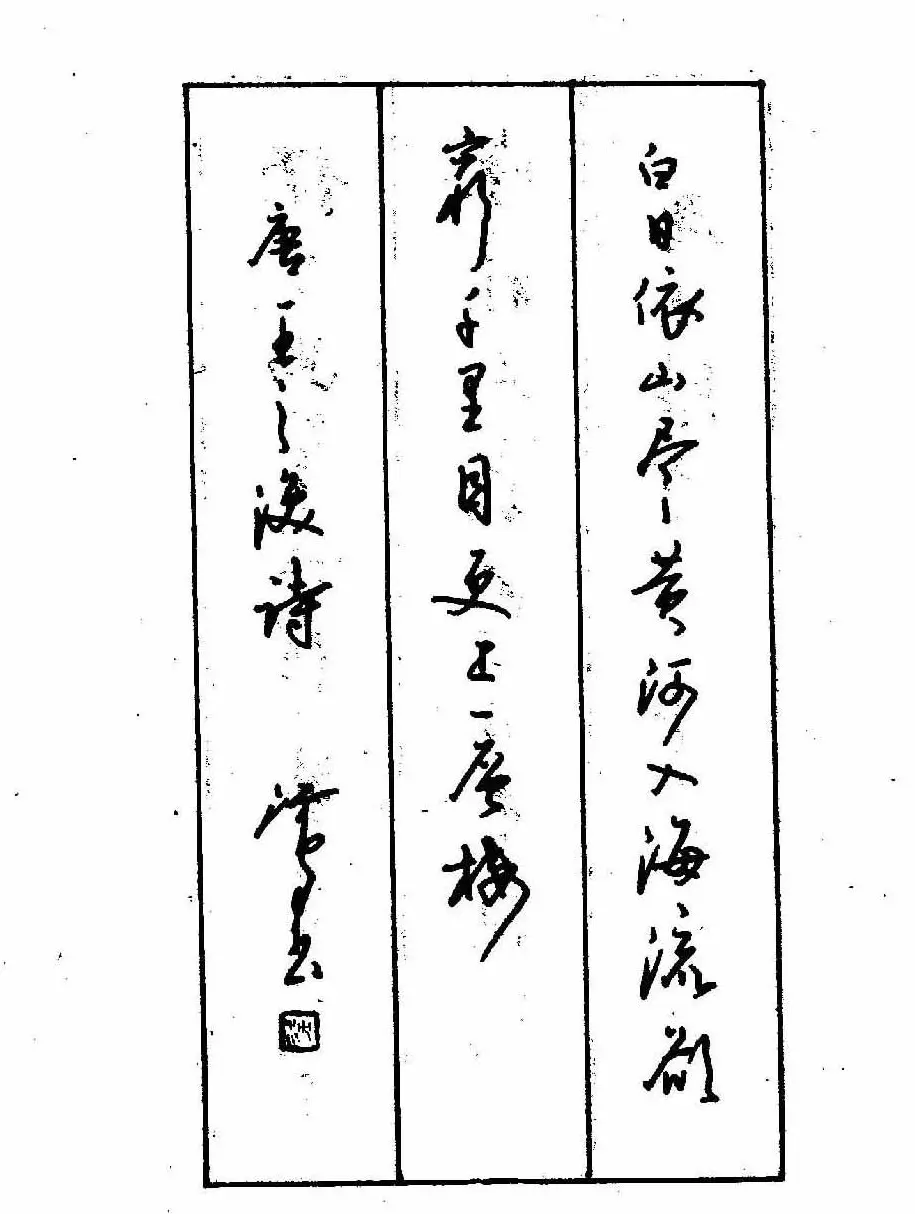 白日依山尽黄河入海流欲
穷千里目更上一层楼
唐王之涣诗 书